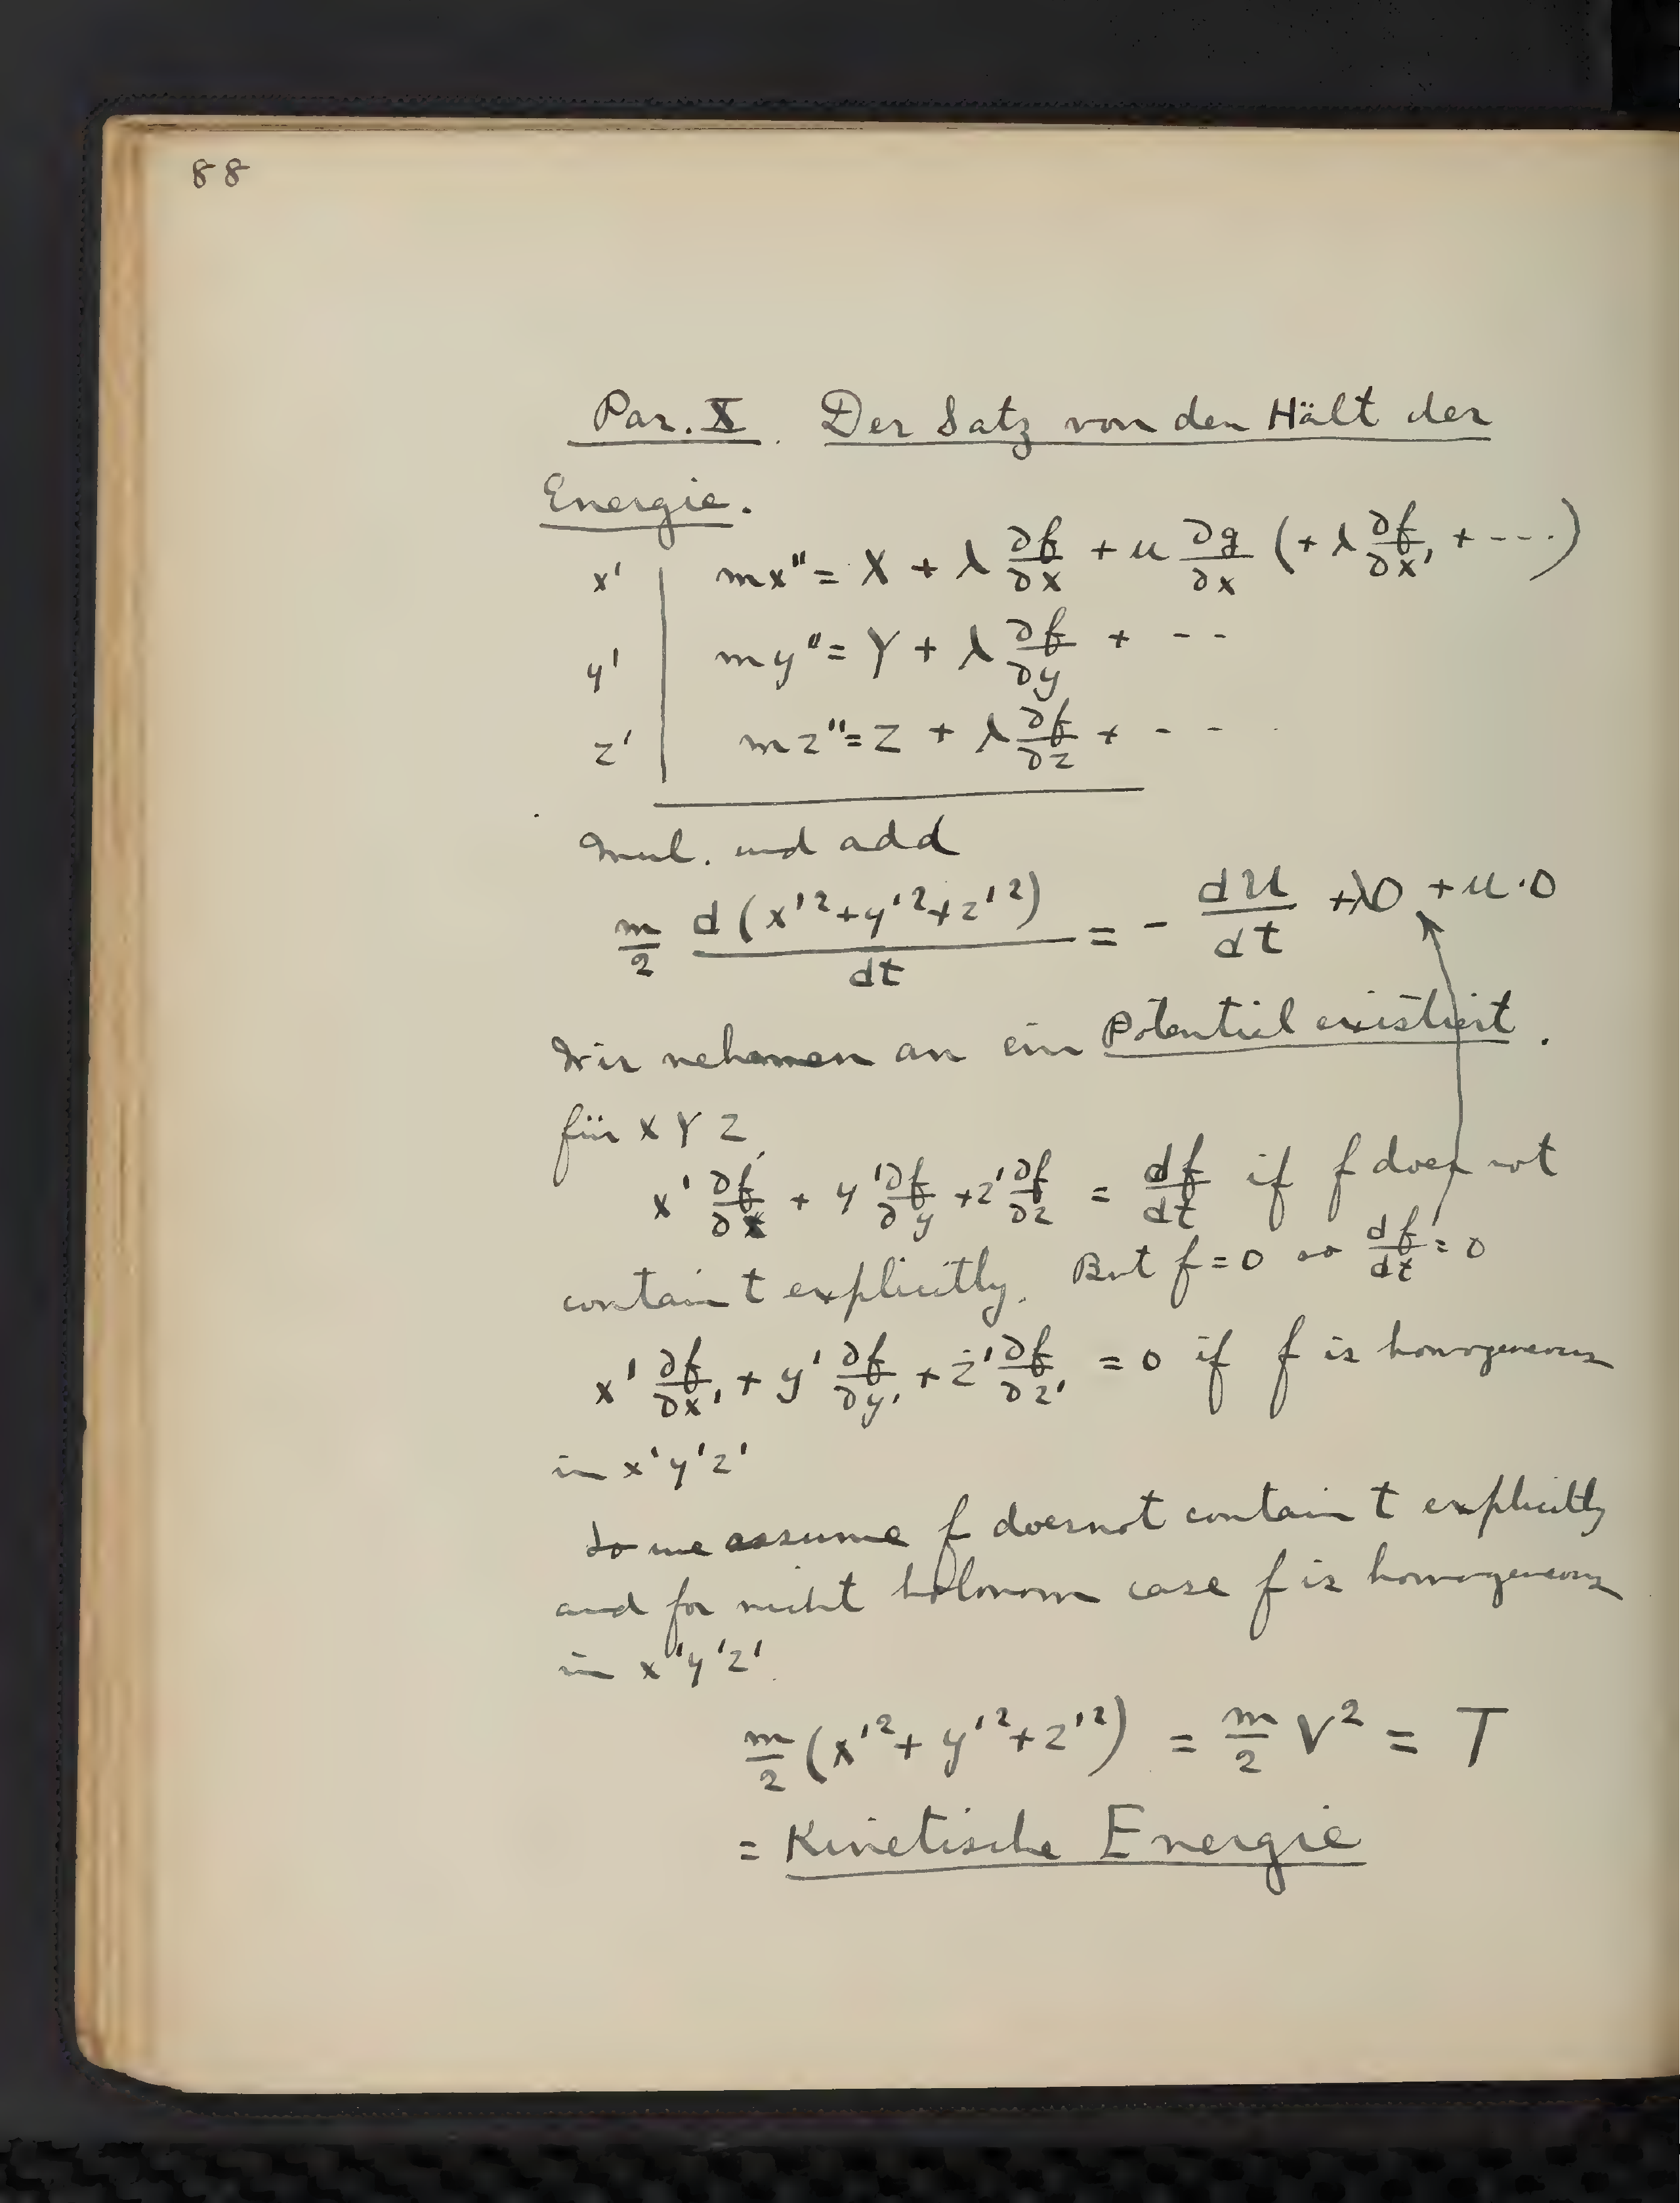 88
Par. X. Der Satz von den Hält der
Energie.
x' | mx'' = X + λ ∂f/∂x + μ ∂g/∂x (+ λ ∂f/∂x' + ---)
y' | my'' = Y + λ ∂f/∂y + --
z' | mz'' = Z + λ ∂f/∂z + - -
Mul. und add
m/2 d(x'²+y'²+z'²)/dt = - dU/dt + λ0 + μ·0
Wir nehmen an ein Potentiel existiert.
für X Y Z
x' ∂f/∂x + y' ∂f/∂y + z' ∂f/∂z = df/dt if f does not
contain t explicitly. But f = 0 so df/dt = 0
x' ∂f/∂x' + y' ∂f/∂y' + z' ∂f/∂z' = 0 if f is homogeneous
in x' y' z'
So we assume f does not contain t explicitly
and for nicht holonom case f is homogeneous
in x' y' z'
m/2 (x'² + y'² + z'²) = m/2 V² = T
= Kinetische Energie